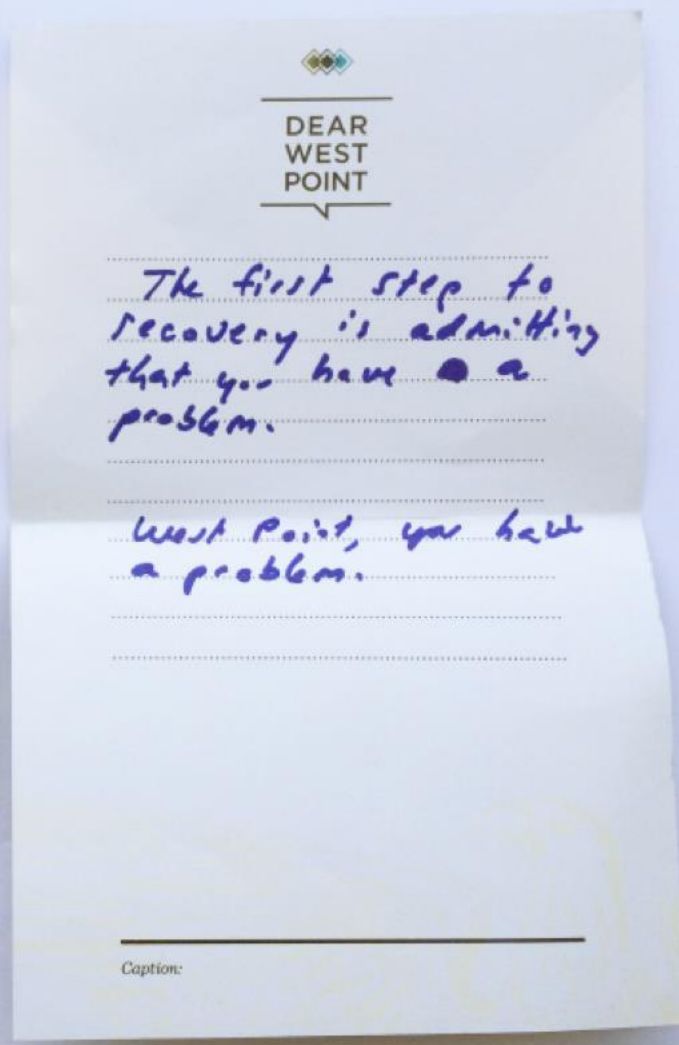 DEAR
WEST
POINT
The first step to
recovery is admitting
that you have a
problem.
West Point, you have
a problem.
Caption: